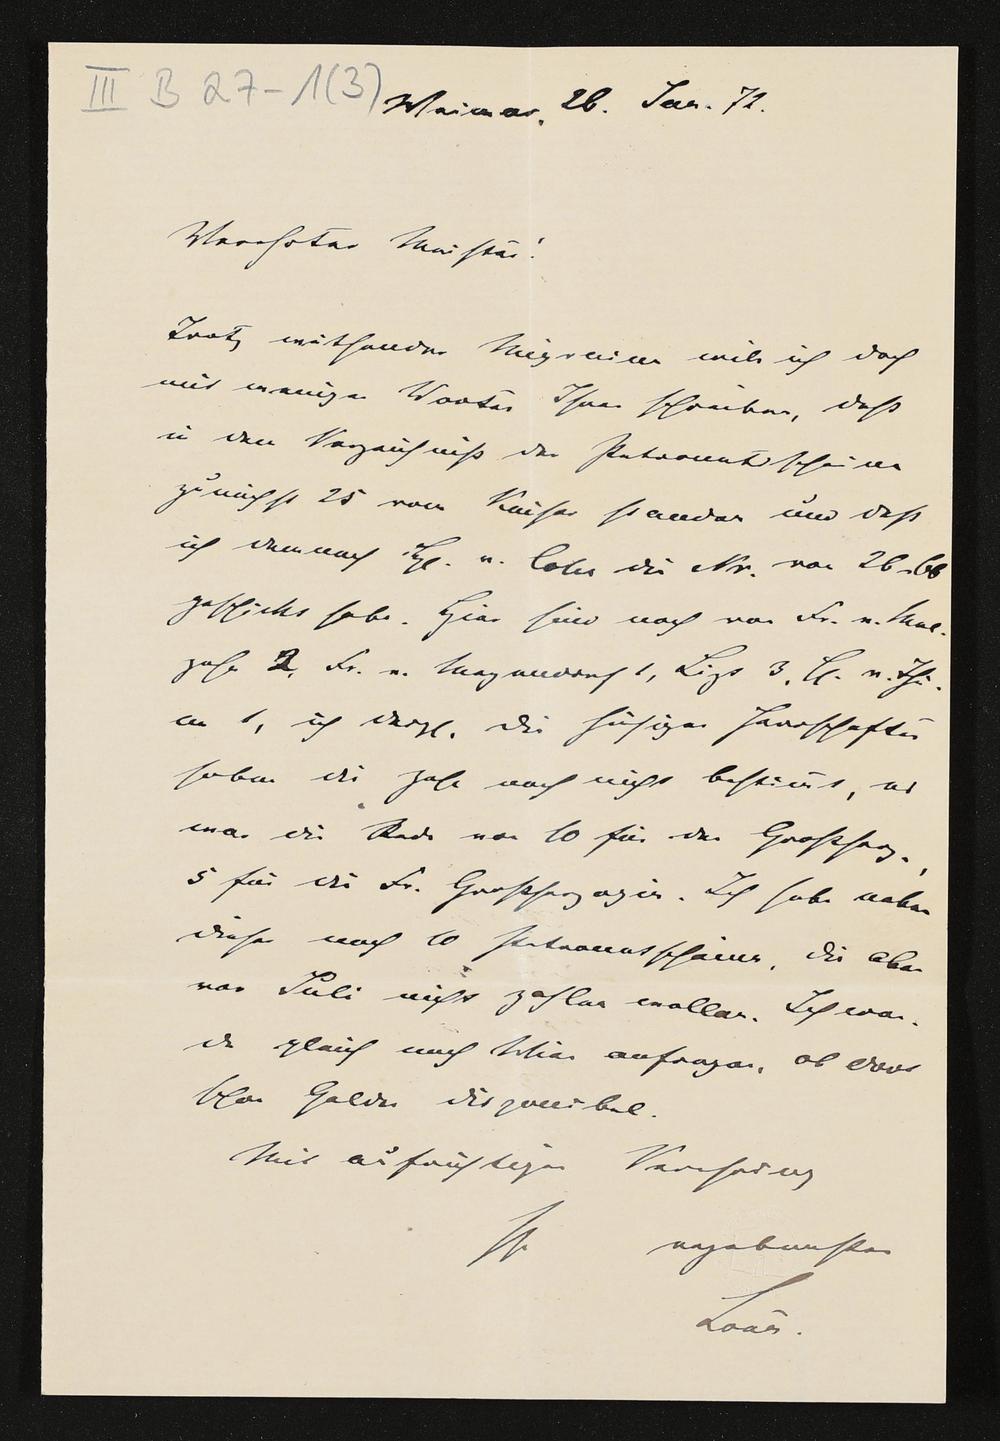 III B 27-1(3)
Weimar, 26. Jan. 72.
Verehrter Meister!
Trotz wüthender Migreine will ich doch
mit wenigen Worten Ihnen schreiben, daß
in dem Verzeichniß der Patronatsscheine
zunächst 25 vom Kaiser standen und daß
ich demnach Hr. v. Loën die Nr. von 26-
geschickt habe. Hier sind noch von Fr. v. Mal-
zahn 2, Fr. v. Meyendorff 1, Liszt 3, H. v.
1, ich dergl. Die hiesigen Herrschaften
haben die Zahl noch nicht bestimt, es
war die Rede von 10 für den Großherz.,
5 für die Fr. Großherzogin. Ich habe neben
diesen noch 10 Patronatsscheine, die aber
vor Juli nicht zahlen wollen. Ich wer-
de gleich nach Wien anfragen, ob dort
schon Gelder disponibel.
Mit aufrichtiger Verehrung
Ihr ergebenster
Loën.